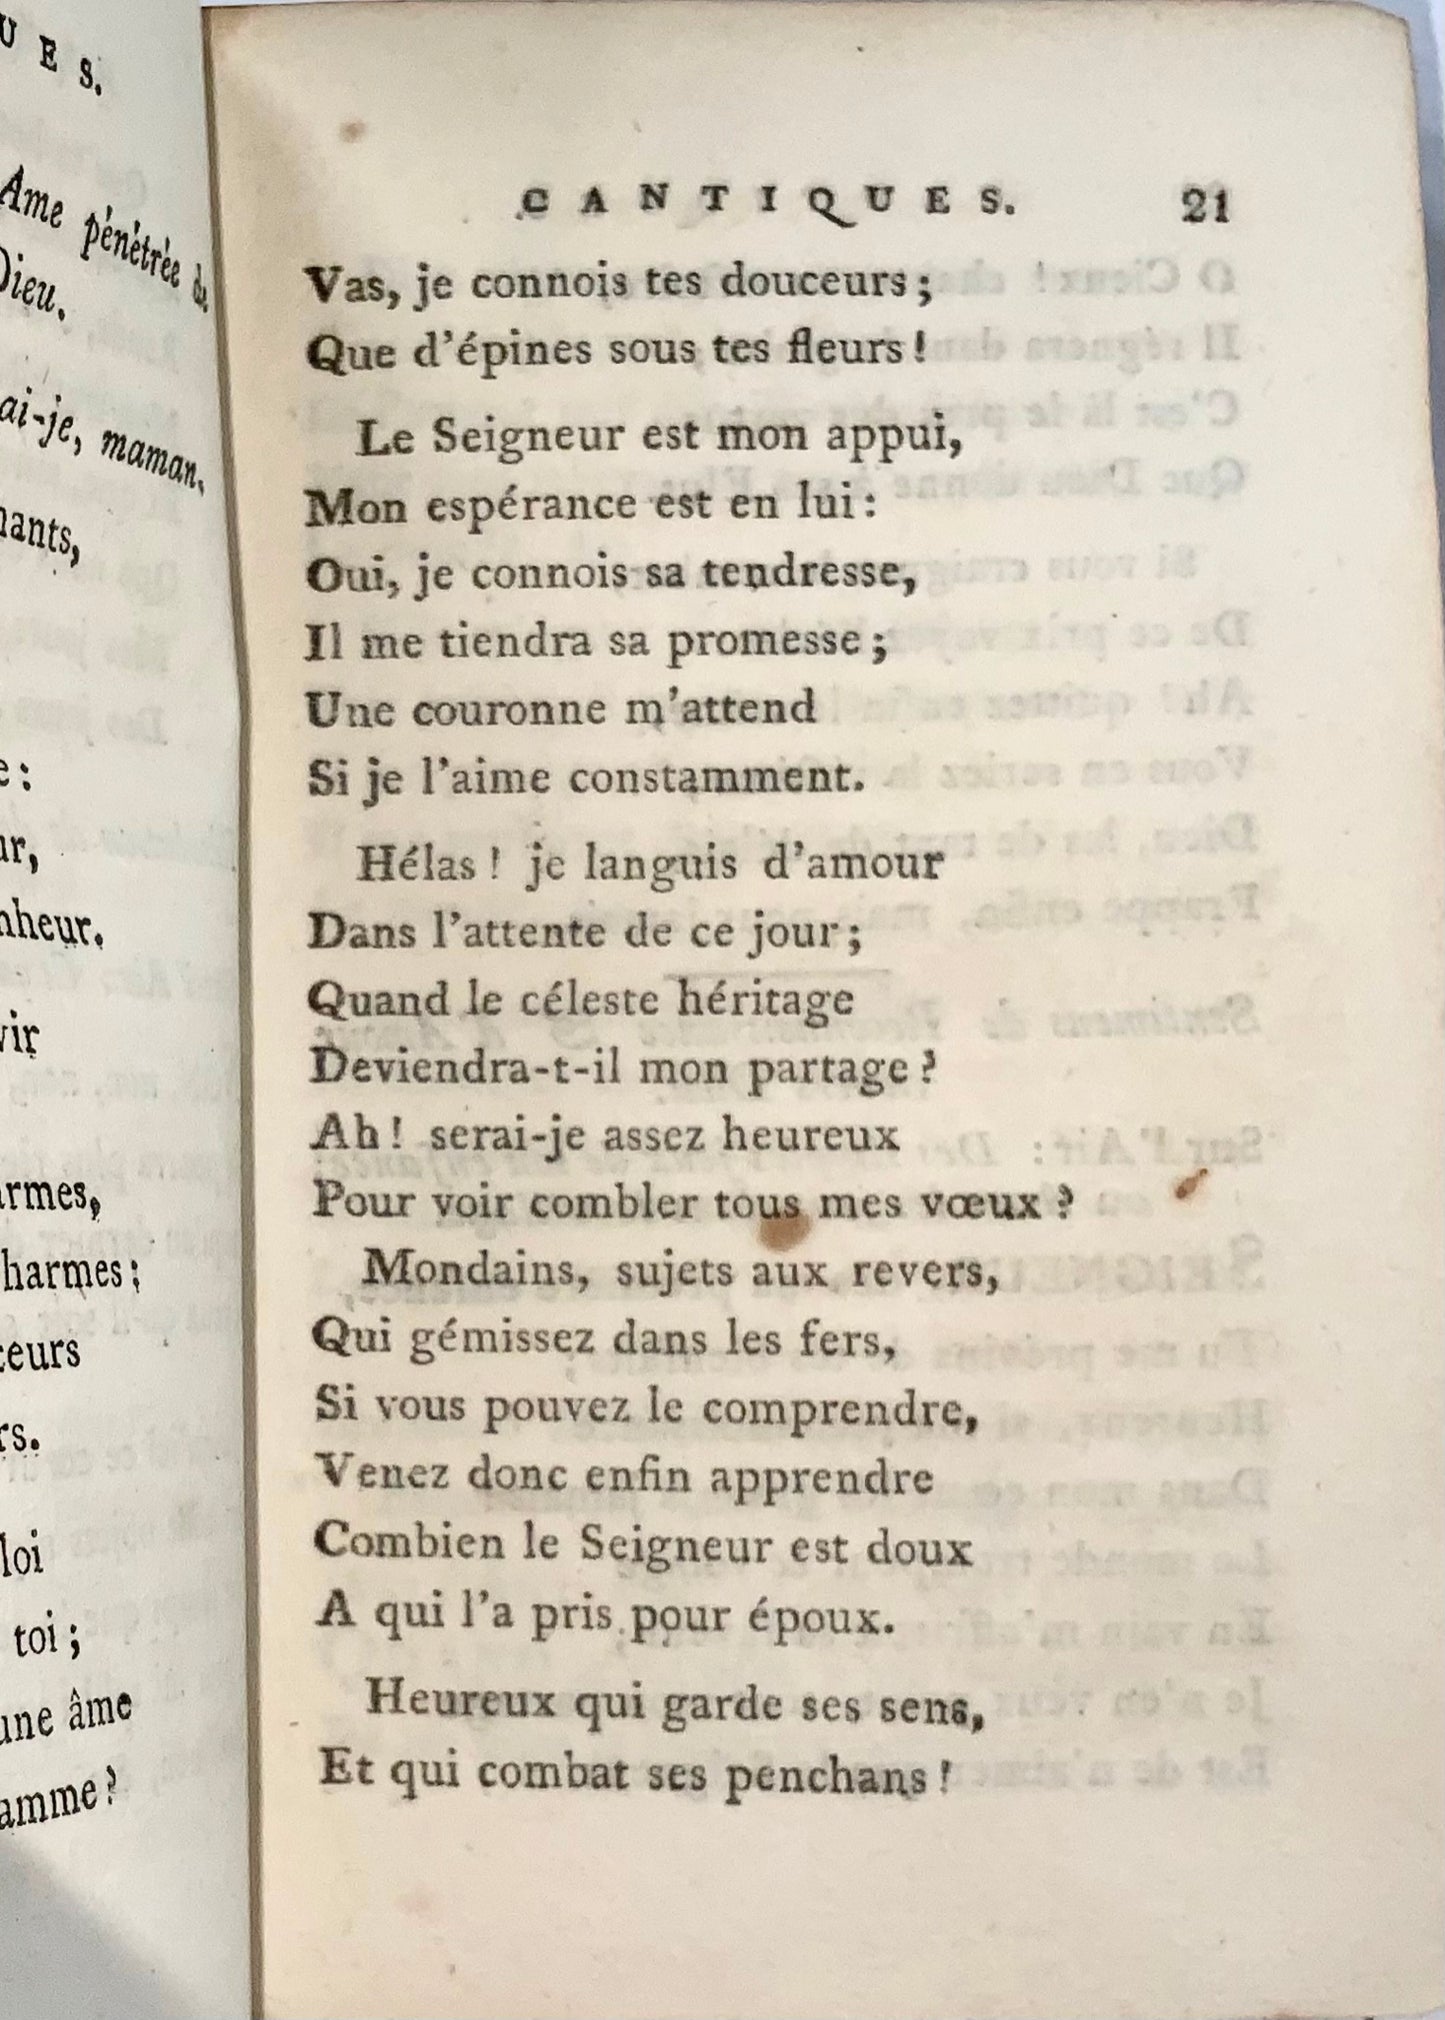 UES.
Ame pénétrée de
Dieu.
ai-je, maman.
nants,
e:
ur,
nheur.
vir
armes,
harmes;
teurs
rs.
loi
toi;
une âme
amme?
CANTIQUES. 21
Vas, je connois tes douceurs;
Que d'épines sous tes fleurs!
Le Seigneur est mon appui,
Mon espérance est en lui:
Oui, je connois sa tendresse,
Il me tiendra sa promesse;
Une couronne m'attend
Si je l'aime constamment.
Hélas! je languis d'amour
Dans l'attente de ce jour;
Quand le céleste héritage
Deviendra-t-il mon partage?
Ah! serai-je assez heureux
Pour voir combler tous mes vœux?
Mondains, sujets aux revers,
Qui gémissez dans les fers,
Si vous pouvez le comprendre,
Venez donc enfin apprendre
Combien le Seigneur est doux
A qui l'a pris pour époux.
Heureux qui garde ses sens,
Et qui combat ses penchans!